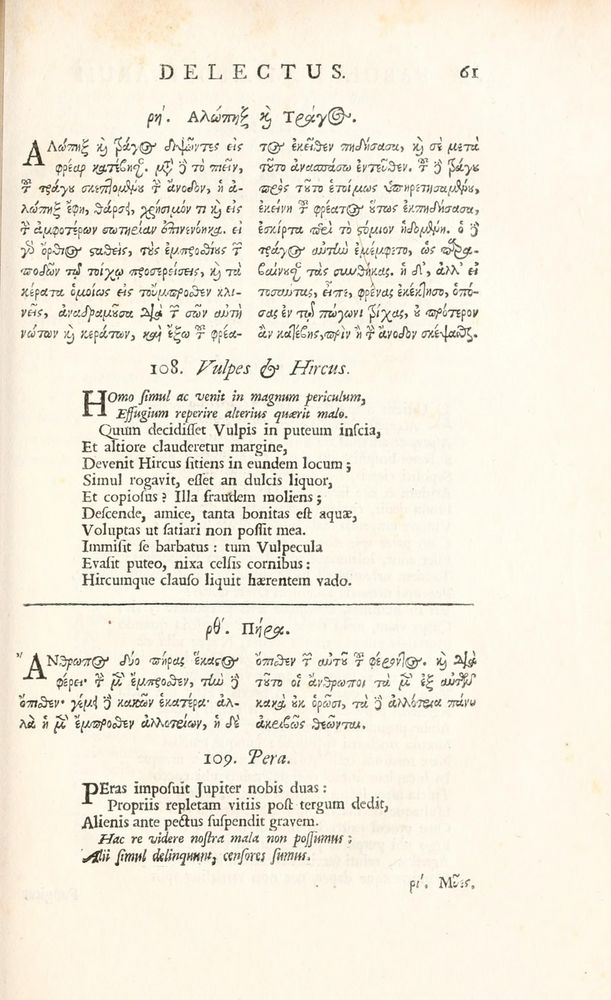 DELECTUS. 61
ρη΄. Αλώπηξ κ̀ Τράγος.
Αλώπηξ κ̀ τράγος διψῶντες εἰς
φρέαρ κατέβησαν. μετὰ δὲ τὸ πιεῖν,
τοῦ τράγου σκεπτομένου τὴν ἄνοδον, ἡ ἀ-
λώπηξ ἔφη, θάρσει, χρήσιμόν τι κ̀ εἰς
τὴν ἀμφοτέρων σωτηρίαν ἐπινενόηκα. εἰ
γὰρ ὄρθιος σταθεὶς, τοὺς ἐμπροσθίους τῶν
ποδῶν τῷ τοίχῳ προσερείσεις, κ̀ τὰ
κέρατα ὁμοίως εἰς τοὔμπροσθεν κλι-
νεῖς, ἀναδραμοῦσα διὰ τῶν σῶν αὐτὴ
νώτων κ̀ κεράτων, καὶ ἔξω τοῦ φρέα-
τος ἐκεῖθεν πηδήσασα, κ̀ σὲ μετὰ
τοῦτο ἀνασπάσω ἐντεῦθεν. τοῦ δὲ τράγου
πρὸς τοῦτο ἑτοίμως ὑπηρετησαμένου,
ἐκείνη τοῦ φρέατος οὕτως ἐκπηδήσασα,
ἐσκίρτα περὶ τὸ στόμιον ἡδομένη. ὁ δὲ
τράγος αὐτὴν ἐμέμφετο, ὡς παρα-
βαίνουσαν τὰς συνθήκας. ἡ δ', ἀλλ' εἰ
τοσαύτας, εἶπε, φρένας ἐκέκτησο, ὁπό-
σας ἐν τῷ πώγωνι τρίχας, οὐ πρότερον
ἂν κατέβης, πρὶν ἢ τὴν ἄνοδον σκέψασθαι.
108. Vulpes & Hircus.
HOmo simul ac venit in magnum periculum,
Effugium reperire alterius quærit malo.
Quum decidisset Vulpis in puteum inscia,
Et altiore clauderetur margine,
Devenit Hircus sitiens in eundem locum;
Simul rogavit, esset an dulcis liquor,
Et copiosus? Illa fraudem moliens;
Descende, amice, tanta bonitas est aquæ,
Voluptas ut satiari non possit mea.
Immisit se barbatus: tum Vulpecula
Evasit puteo, nixa celsis cornibus:
Hircumque clauso liquit hærentem vado.
ρθ΄. Πήρα.
ΑΝθρωπος δύο πήρας ἕκαστος
φέρει· τὴν μὲν ἔμπροσθεν, τὴν δὲ
ὄπισθεν· γέμει δὲ κακῶν ἑκατέρα· ἀλ-
λὰ ἡ μὲν ἔμπροσθεν ἀλλοτρίων, ἡ δὲ
ὄπισθεν τῶν αὐτοῦ τοῦ φέροντος. κ̀ διὰ
τοῦτο οἱ ἄνθρωποι τὰ μὲν ἐξ αὑτῶν
κακὰ οὐκ ὁρῶσι, τὰ δὲ ἀλλότρια πάνυ
ἀκριβῶς θεῶνται.
109. Pera.
PEras imposuit Jupiter nobis duas:
Propriis repletam vitiis post tergum dedit,
Alienis ante pectus suspendit gravem.
Hac re videre nostra mala non possumus;
Alii simul delinquunt, censores sumus.
ρι΄. Μῦες,